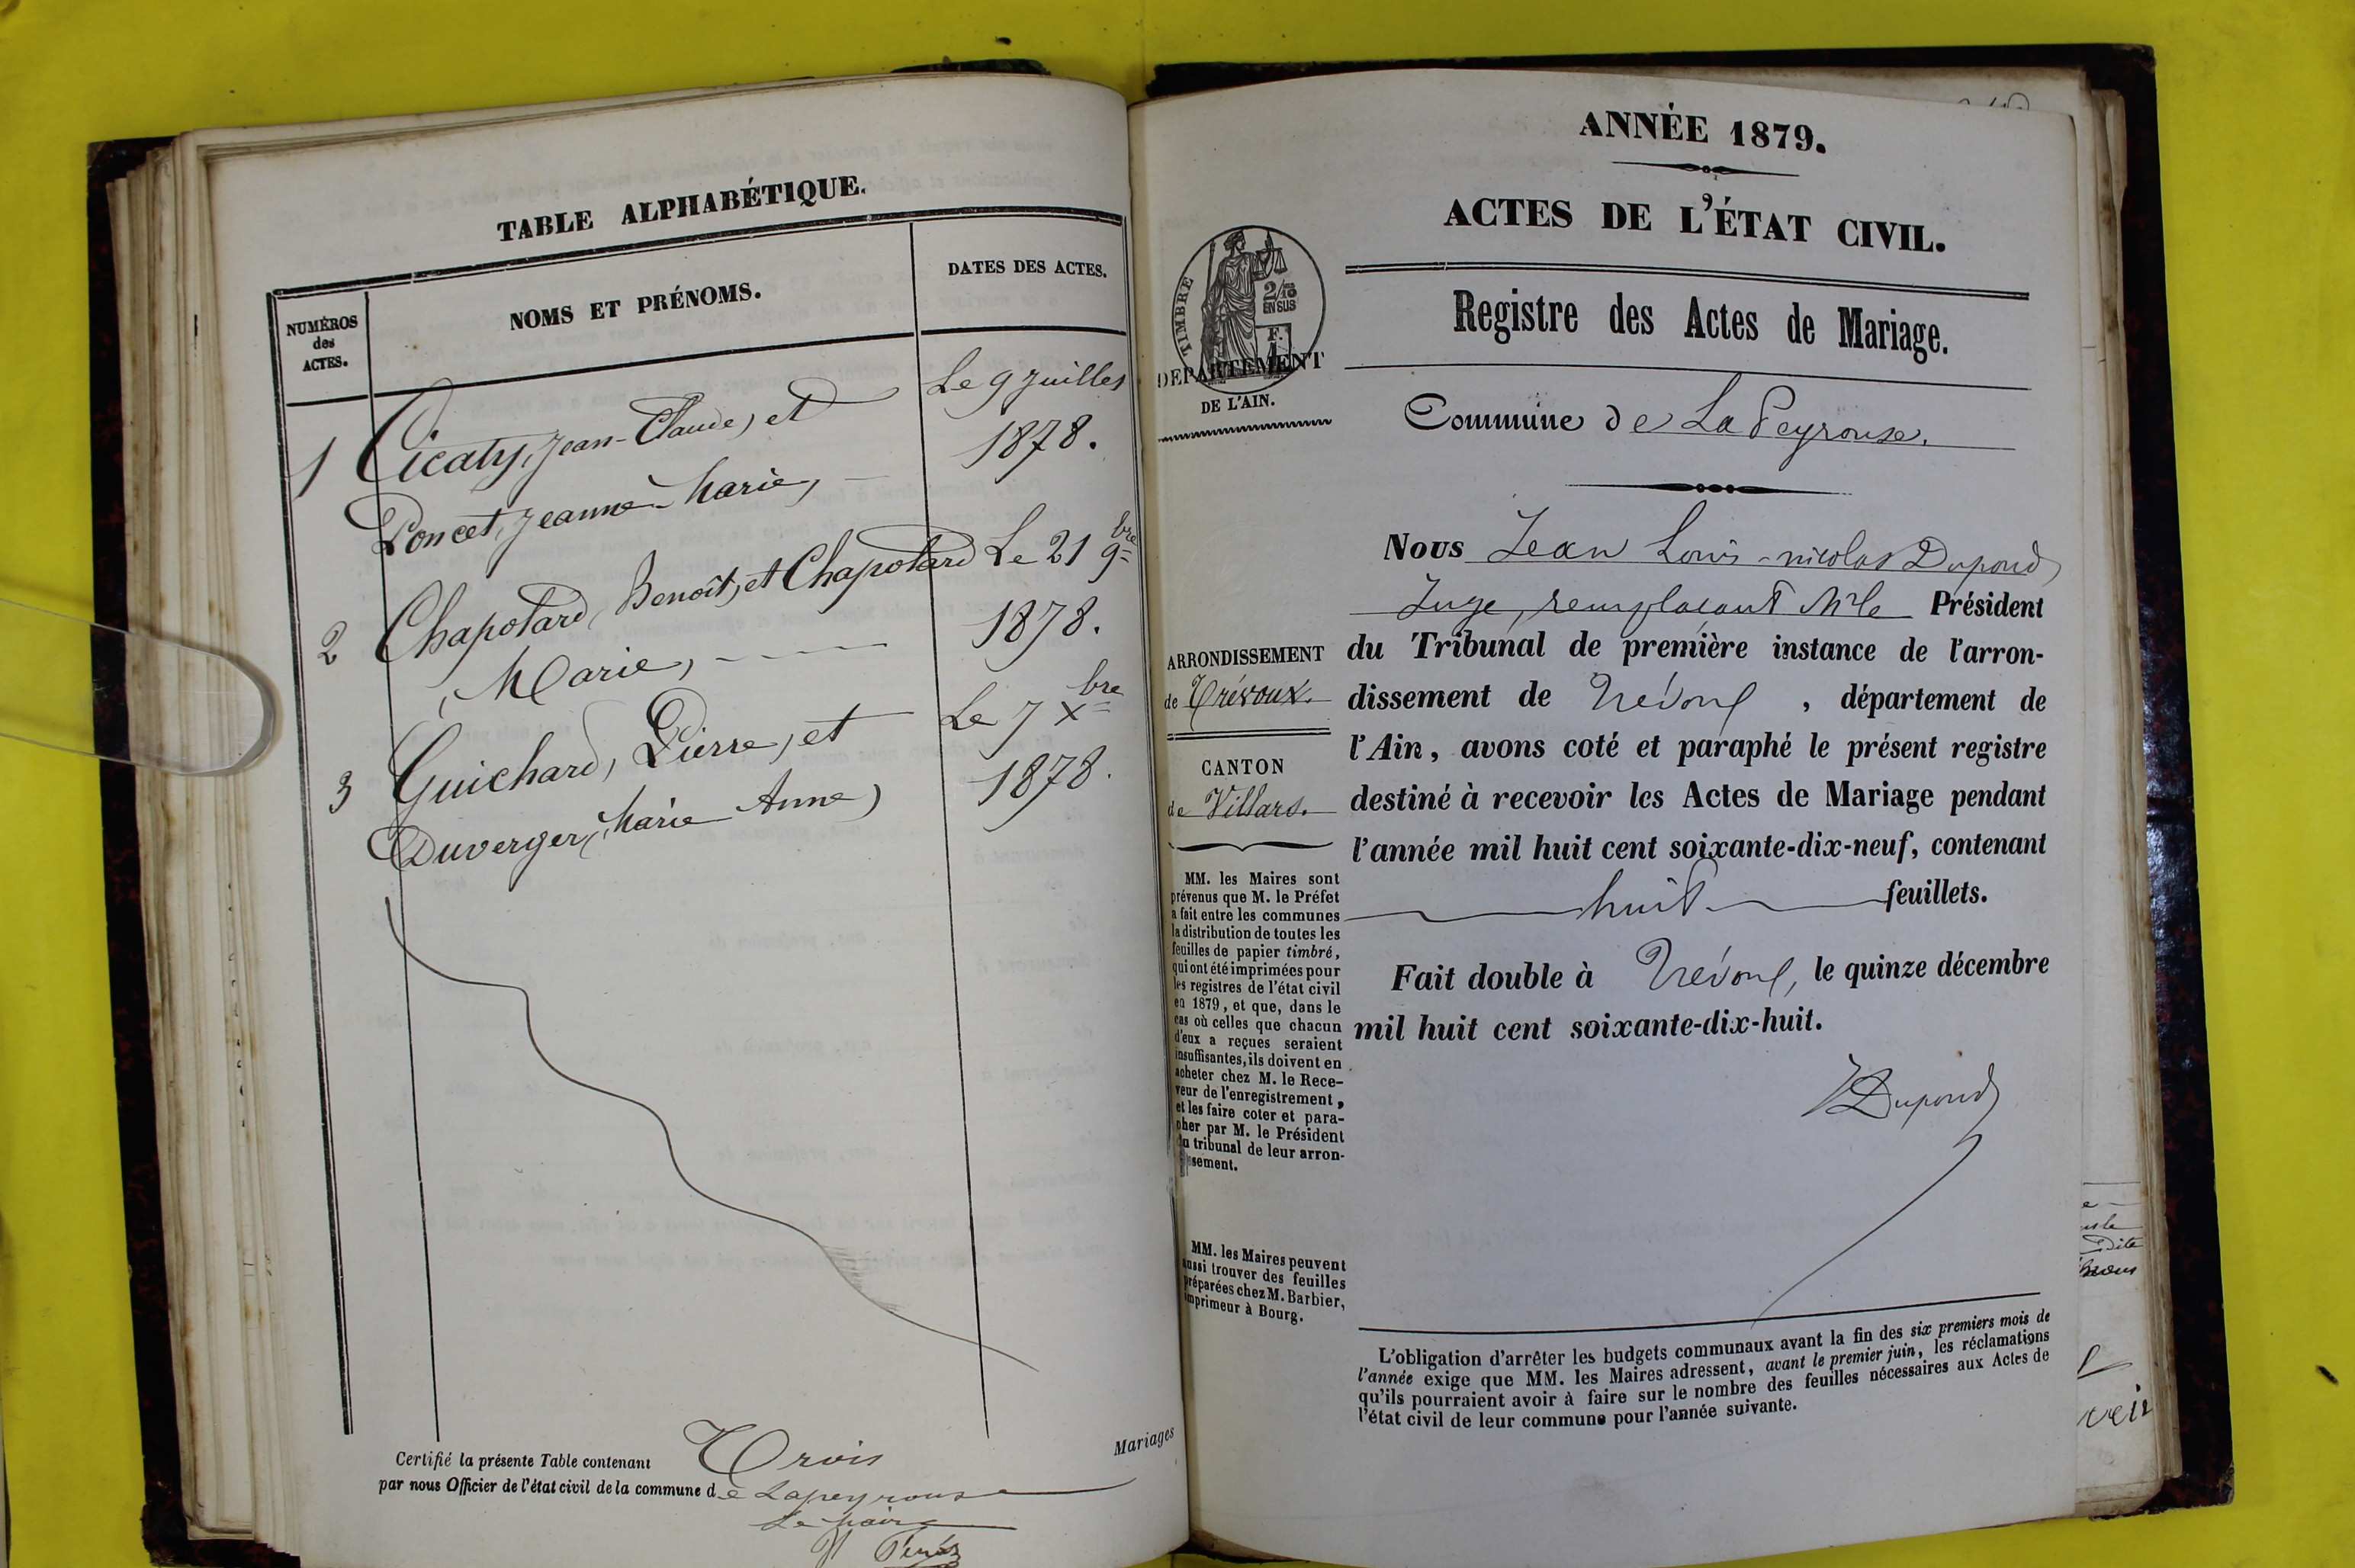 TABLE ALPHABÉTIQUE.
NUMÉROS
des
ACTES.
NOMS ET PRÉNOMS.
DATES DES ACTES.
1 Cicaty, Jean-Claude, et Le 9 Juillet
1878.
Poncet, Jeanne-Marie,
2 Chapotard, Benoît, et Chapotard Le 21 9bre
Marie, 1878.
3 Guichard, Pierre, et Le 7 Xbre
Duverger, Marie Anne, 1878.
Certifié la présente Table contenant Trois Mariages
par nous Officier de l'état civil de la commune de Lapeyrouse
Le Maire
ANNÉE 1879.
ACTES DE L'ÉTAT CIVIL.
TIMBRE
2/10
EN SUS
F.
DEPARTEMENT
DE L'AIN.
Registre des Actes de Mariage.
Commune de La Peyrouse.
Nous Jean Louis-nicolas Dupond
Juge, remplaçant Mr le Président
du Tribunal de première instance de l'arron-
dissement de Trévoux, département de
l'Ain, avons coté et paraphé le présent registre
destiné à recevoir les Actes de Mariage pendant
l'année mil huit cent soixante-dix-neuf, contenant
huit feuillets.
Fait double à Trévoux, le quinze décembre
mil huit cent soixante-dix-huit.
Dupond
ARRONDISSEMENT
de Trévoux.
CANTON
de Villars.
MM. les Maires sont
prévenus que M. le Préfet
a fait entre les communes
la distribution de toutes les
feuilles de papier timbré,
qui ont été imprimées pour
les registres de l'état civil
en 1879, et que, dans le
cas où celles que chacun
d'eux a reçues seraient
insuffisantes, ils doivent en
acheter chez M. le Rece-
veur de l'enregistrement,
et les faire coter et para-
pher par M. le Président
du tribunal de leur arron-
ssement.
MM. les Maires peuvent
aussi trouver des feuilles
préparées chez M. Barbier,
imprimeur à Bourg.
L'obligation d'arrêter les budgets communaux avant la fin des six premiers mois de
l'année exige que MM. les Maires adressent, avant le premier juin, les réclamations
qu'ils pourraient avoir à faire sur le nombre des feuilles nécessaires aux Actes de
l'état civil de leur commune pour l'année suivante.